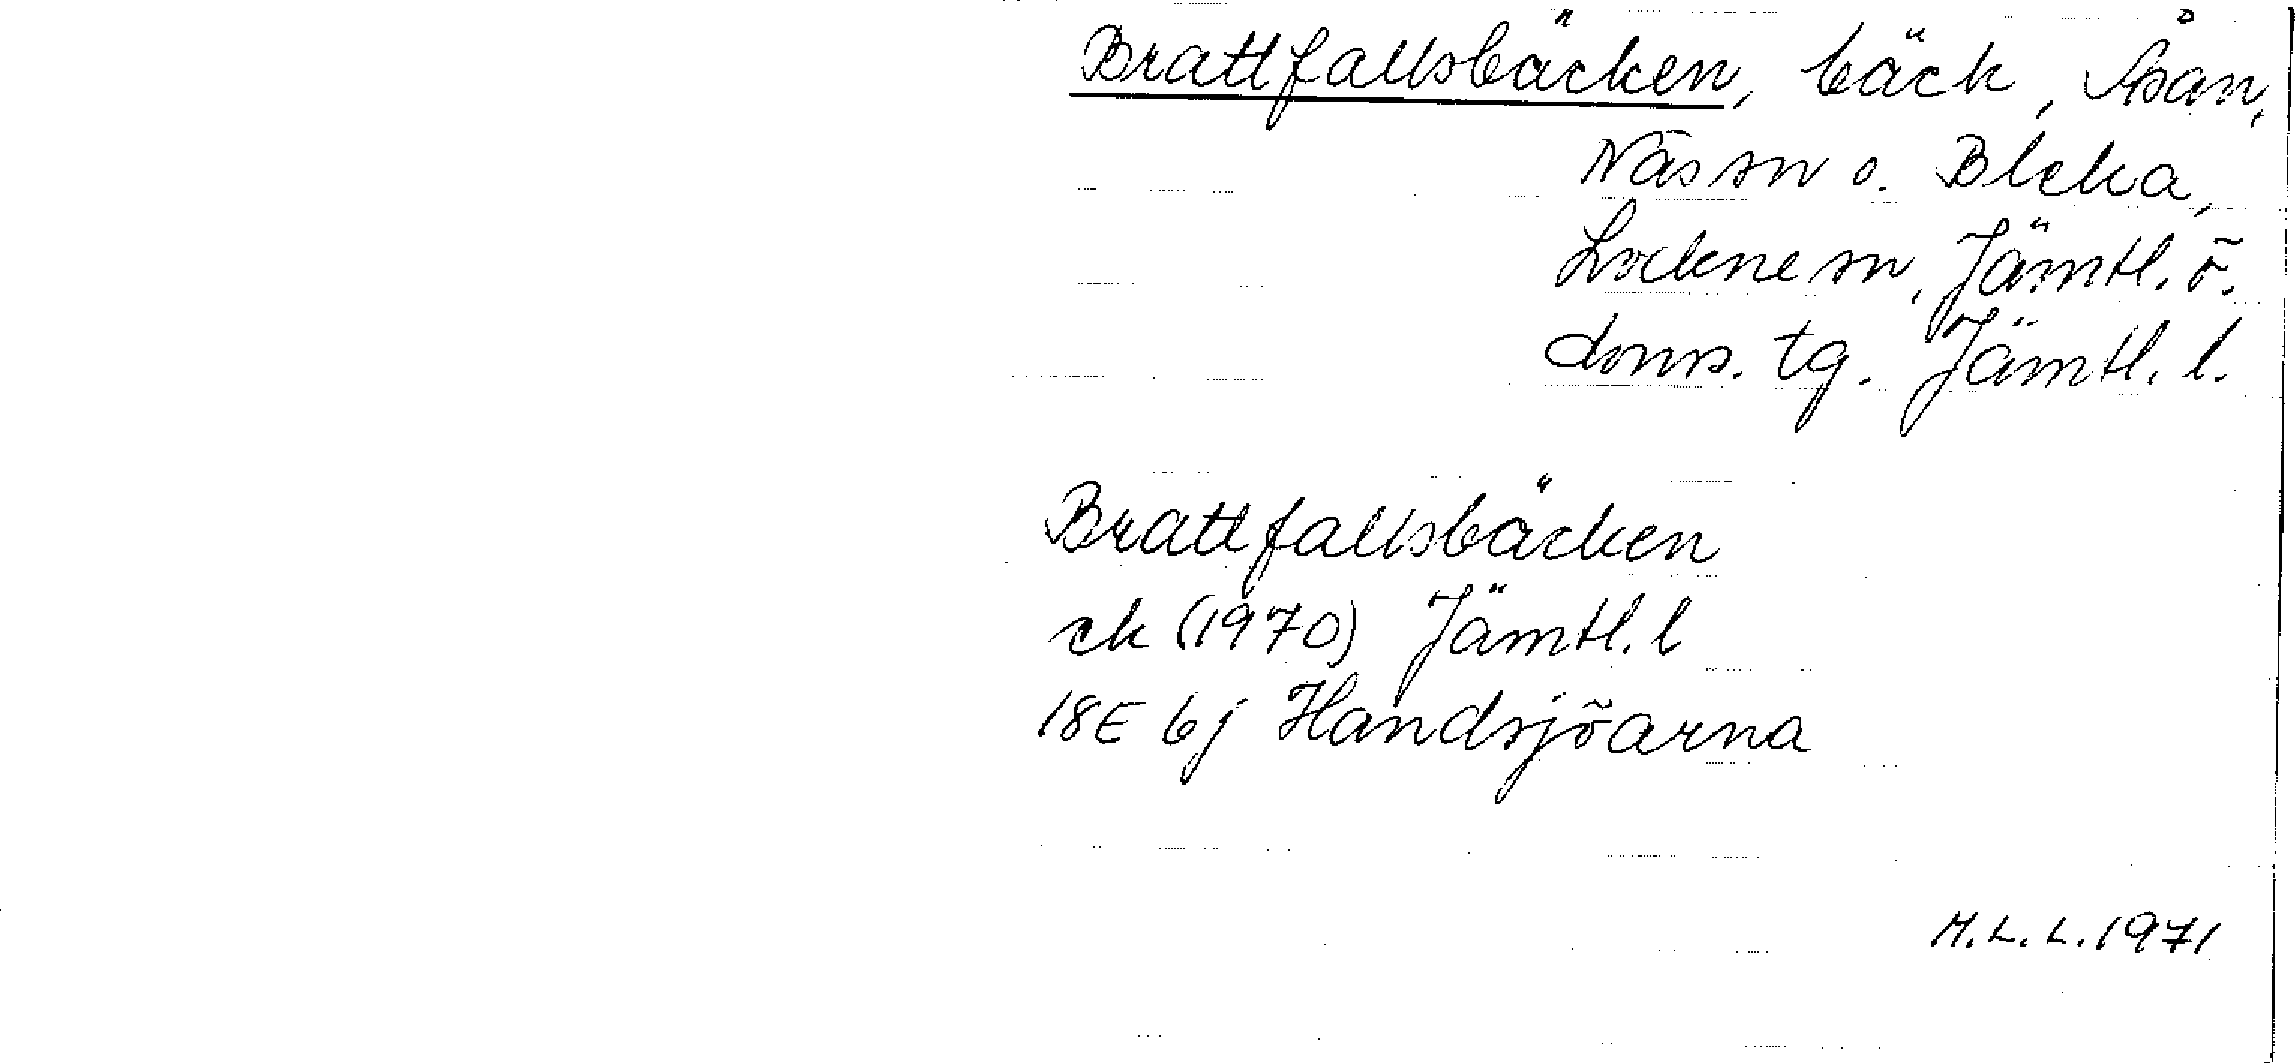 Brattfallsbäcken, bäck, Åsan,
Näs sn o. Bleka,
Lockne sn, Jämtl. ö.
doms. tg. Jämtl. l.
Brattfallsbäcken
ek (1970) Jämtl. l
18E 6j Handsjöarna
M.L.L. 1971